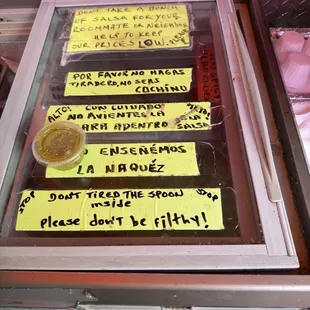 DON'T TAKE A BUNCH
OF SALSA FOR YOUR
ROOMMATE OR NEIGHBOR
HELP TO KEEP
OUR PRICES LOW.
POR FAVOR NO HAGAS
TIRADERO, NO SEAS
COCHINO
ALTO! CON CUIDADO
NO AVIENTES LA
PARA ADENTRO SALSA
ENSEÑEMOS
LA NAQUÉZ
STOP DONT TIRED THE SPOON STOP
inside
please don't be filthy!